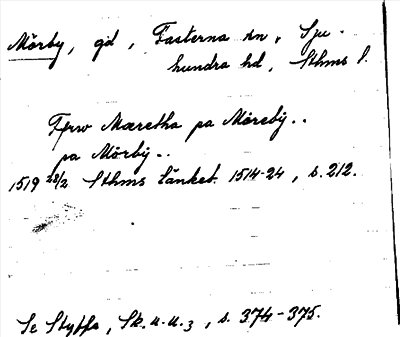 Mörby, gd, Fasterna sn, Sju-
hundra hd, Sthms l.
Ffrw Mæretha pa Mörebÿ..
pa Mörbÿ..
1519 28/2 Sthms tänkeb. 1514-24, s. 212.
Se Styffe, Sk. u. u. 3, s. 374-375.